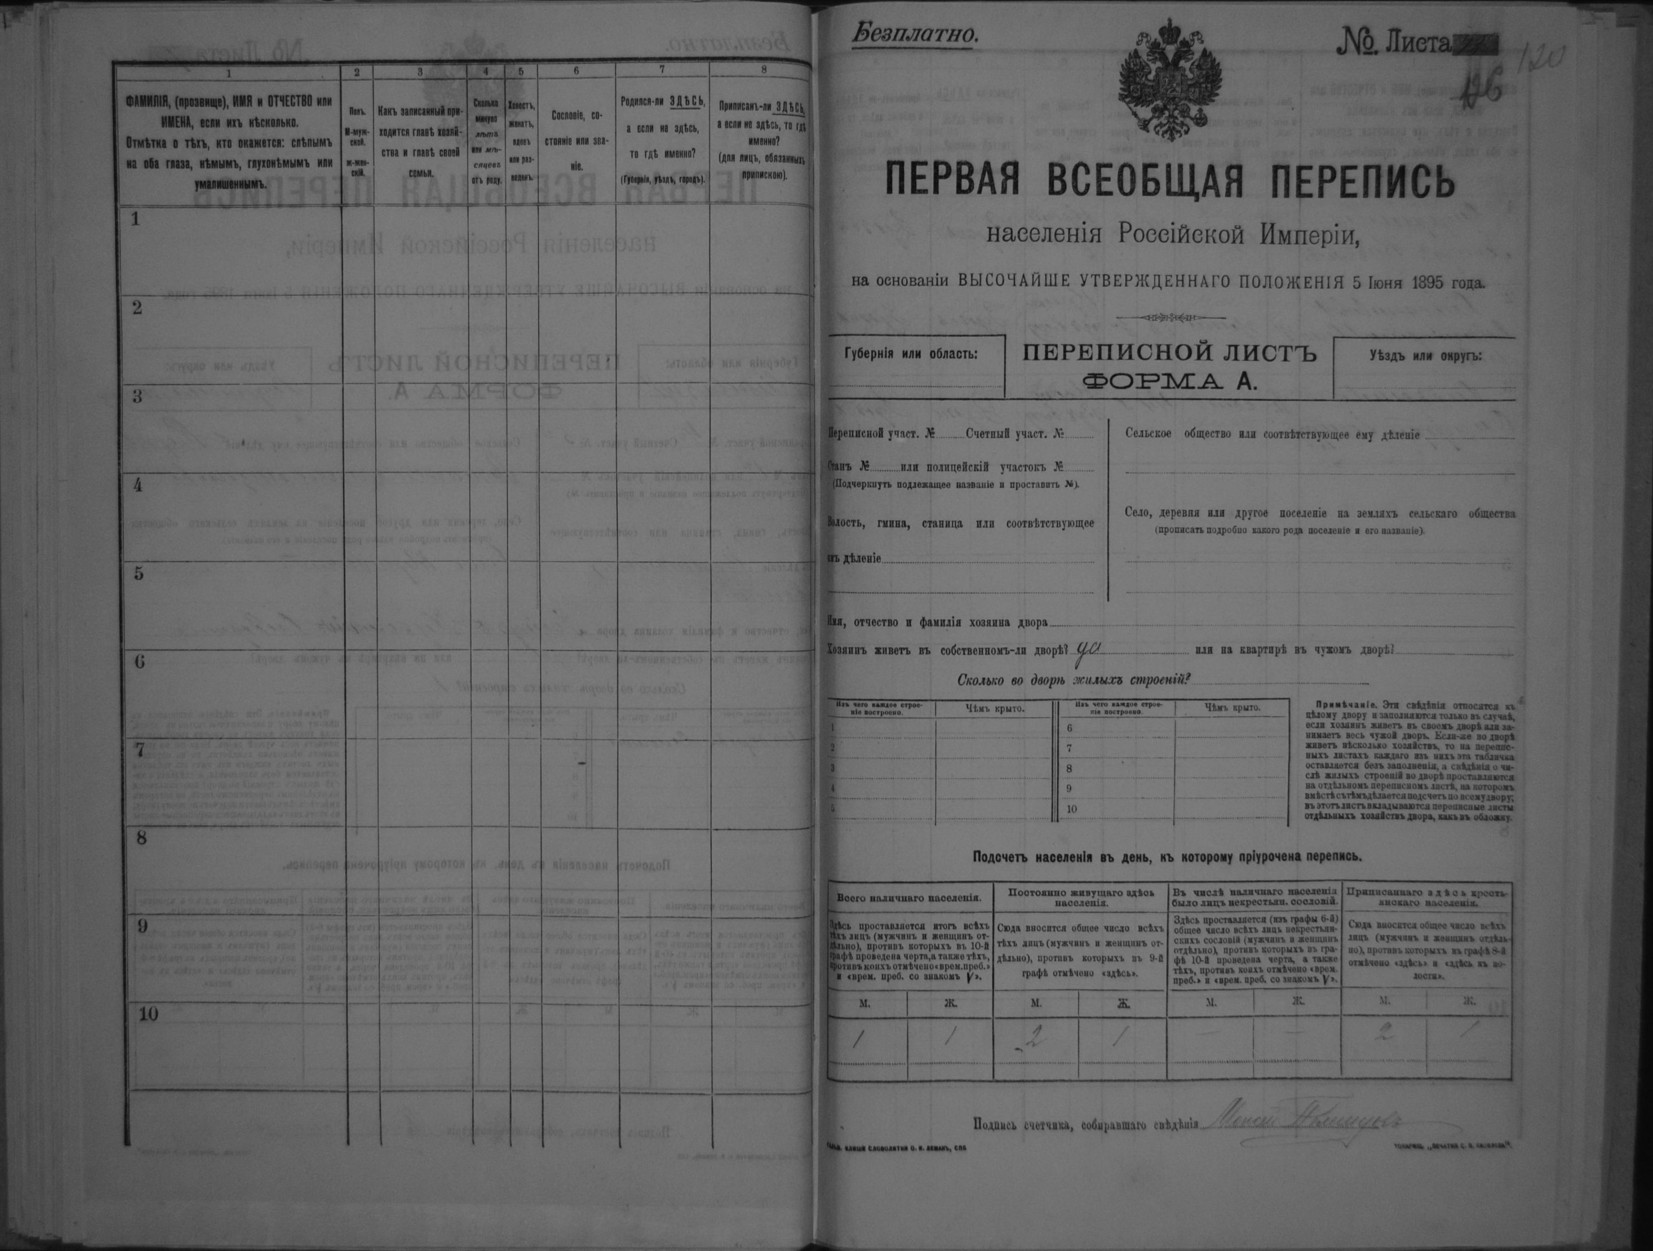 1
2
3
4
5
6
7
8
ФАМИЛІЯ, (прозвище), ИМЯ и ОТЧЕСТВО или
ИМЕНА, если ихъ нѣсколько.
Отмѣтка о тѣхъ, кто окажется: слѣпымъ
на оба глаза, нѣмымъ, глухонѣмымъ или
умалишеннымъ.
Полъ.
М-муж-
ской.
ж-жен-
скій.
Какъ записанный при-
ходится главѣ хозяй-
ства и главѣ своей
семьи.
Сколько
минуло
лѣтъ
или мѣ-
сяцевъ
отъ роду.
Холостъ,
женатъ,
вдовъ
или раз-
веденъ.
Сословіе, со-
стояніе или зва-
ніе.
Родился-ли ЗДѢСЬ,
а если не здѣсь,
то гдѣ именно?
(Губернія, уѣздъ, городъ).
Приписанъ-ли ЗДѢСЬ,
а если не здѣсь, то гдѣ
именно?
(для лицъ, обязанныхъ
припискою).
1
2
3
4
5
6
7
8
9
10
Безплатно.
№ Листа
120
ПЕРВАЯ ВСЕОБЩАЯ ПЕРЕПИСЬ
населенія Россійской Имперіи,
на основаніи ВЫСОЧАЙШЕ УТВЕРЖДЕННАГО ПОЛОЖЕНІЯ 5 Іюня 1895 года.
Губернія или область:
ПЕРЕПИСНОЙ ЛИСТЪ
ФОРМА А.
Уѣздъ или округъ:
Переписной участ. № Счетный участ. №
Станъ № или полицейскій участокъ №
(Подчеркнуть подлежащее названіе и проставить №).
Волость, гмина, станица или соотвѣтствующее
имъ дѣленіе
Сельское общество или соотвѣтствующее ему дѣленіе
Село, деревня или другое поселеніе на земляхъ сельскаго общества
(прописать подробно какого рода поселеніе и его названіе).
Имя, отчество и фамилія хозяина двора
Хозяинъ живетъ въ собственномъ-ли дворѣ? да или на квартирѣ въ чужомъ дворѣ?
Сколько во дворѣ жилыхъ строеній?
Изъ чего каждое строе-
ніе построено.
Чѣмъ крыто.
1
2
3
4
5
Изъ чего каждое строе-
ніе построено.
Чѣмъ крыто.
6
7
8
9
10
Примѣчаніе. Эти свѣдѣнія относятся къ
цѣлому двору и заполняются только въ случаѣ,
если хозяинъ живетъ въ своемъ дворѣ или за-
нимаетъ весь чужой дворъ. Если-же во дворѣ
живетъ нѣсколько хозяйствъ, то на перепис-
ныхъ листахъ каждаго изъ нихъ эта табличка
оставляется безъ заполненія, а свѣдѣнія о чи-
слѣ жилыхъ строеній во дворѣ проставляются
на отдѣльномъ переписномъ листѣ, на которомъ
вмѣстѣ съ тѣмъ дѣлается подсчетъ по всему двору;
въ этотъ листъ вкладываются переписные листы
отдѣльныхъ хозяйствъ двора, какъ въ обложку.
Подсчетъ населенія въ день, къ которому пріурочена перепись.
Всего наличнаго населенія.
Здѣсь проставляется итогъ всѣхъ
тѣхъ лицъ (мужчинъ и женщинъ от-
дѣльно), противъ которыхъ въ 10-й
графѣ проведена черта, а также тѣхъ,
противъ коихъ отмѣчено «врем. преб.»
и «врем. преб. со знакомъ V».
Постоянно живущаго здѣсь
населенія.
Сюда вносится общее число всѣхъ
тѣхъ лицъ (мужчинъ и женщинъ от-
дѣльно), противъ которыхъ въ 9-й
графѣ отмѣчено «здѣсь».
Въ числѣ наличнаго населенія
было лицъ некрестьян. сословій.
Здѣсь проставляется (изъ графы 6-й)
общее число всѣхъ лицъ некрестьян-
скихъ сословій (мужчинъ и женщинъ
отдѣльно), противъ которыхъ въ гра-
фѣ 10-й проведена черта, а также
тѣхъ, противъ коихъ отмѣчено «врем.
преб.» и «врем. преб. со знакомъ V».
Приписаннаго здѣсь кресть-
янскаго населенія.
Сюда вносится общее число всѣхъ
лицъ (мужчинъ и женщинъ отдѣль-
но), противъ которыхъ въ графѣ 8-й
отмѣчено «здѣсь» и «здѣсь въ во-
лости».
М. Ж. М. Ж. М. Ж. М. Ж.
1 1 2 1 — — 2 1
Подпись счетчика, собиравшаго свѣдѣнія